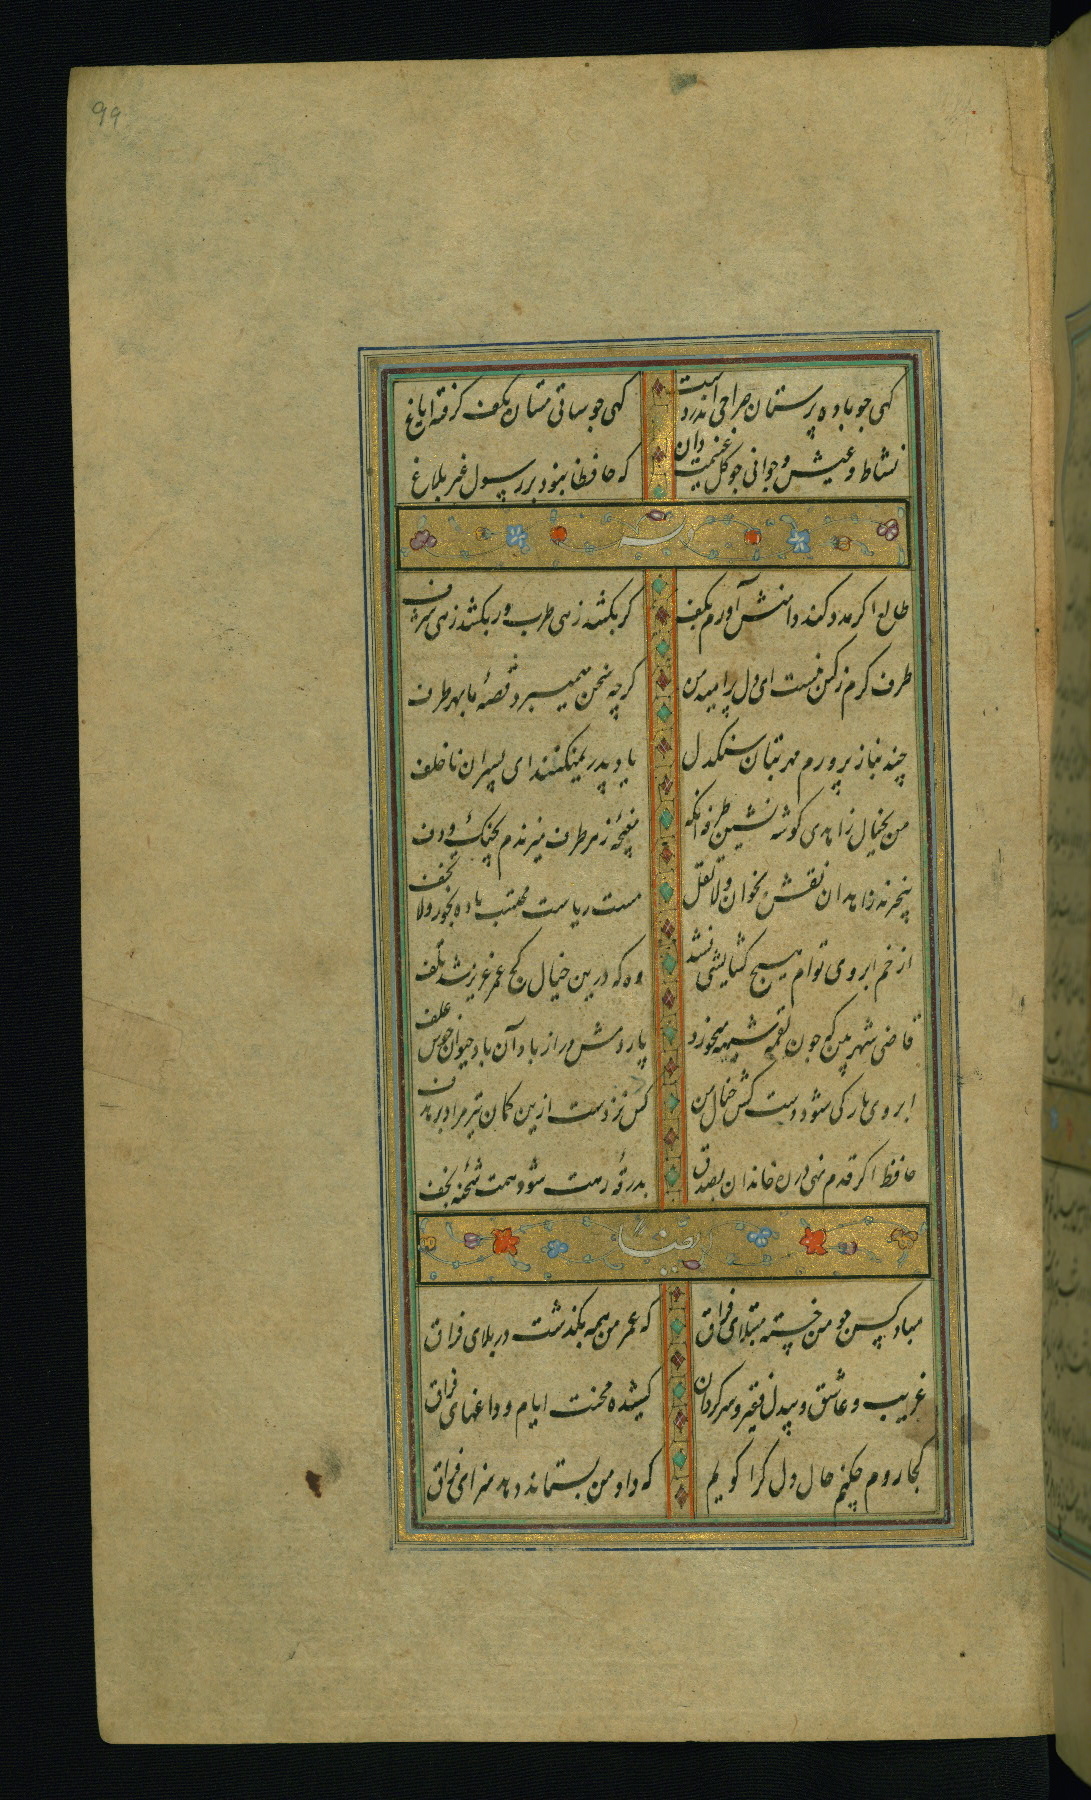 99
کهی جو باده پرستان صراحی اندر دست
کهی جو ساقی مستان بکف کرفته ایاغ
نشاط و عیش و جوانی جو کل غنیمت دان
که حافظا نبود بر رسول غیر بلاغ
وله
طالع اکر مدد کند دامنش آورم بکف
کر بکشد زهی طرب ور بکشد زهی شرف
طرف کرم ز کس نبست ای دل پر امید من
کرچه سخن همیبرد قصهٔ ما بهر طرف
چند بناز پرورم مهر بتان سنکدل
یاد پدر نمیکنند ای پسران ناخلف
من بخیال زاهدی کوشه نشین طرفه آنکه
مغبچهٔ ز هر طرف میزندم بچنک و دف
بیخبرند زاهدان نقش بخوان و لا تقل
مست ریاست محتسب باده بخور و لا تخف
از خم ابروی توام هیج کشایشی نشد
وه که درین خیال کج عمر عزیز شد تلف
قاضی شهر بین که جون لقمه شبهه میخورد
پاردمش دراز باد آن باد حیوان خوش علف
ابروی یار کی شود دست کش خیال من
کس نزدست ازین کمان تیر مراد بر هدف
حافظ اکر قدم نهی در ره خاندان بصدق
بدرقهٔ رهت شود همت شحنه نجف
ایضًا
مباد کس جو من خسته مبتلای فراق
که عمر من همه بکذشت در بلای فراق
غریب و عاشق و بیدل فقیر و سرکردان
کشیده محنت ایام و داغهای فراق
کجا روم چکنم حال دل کرا کویم
که داد من بستاند دهد سزای فراق